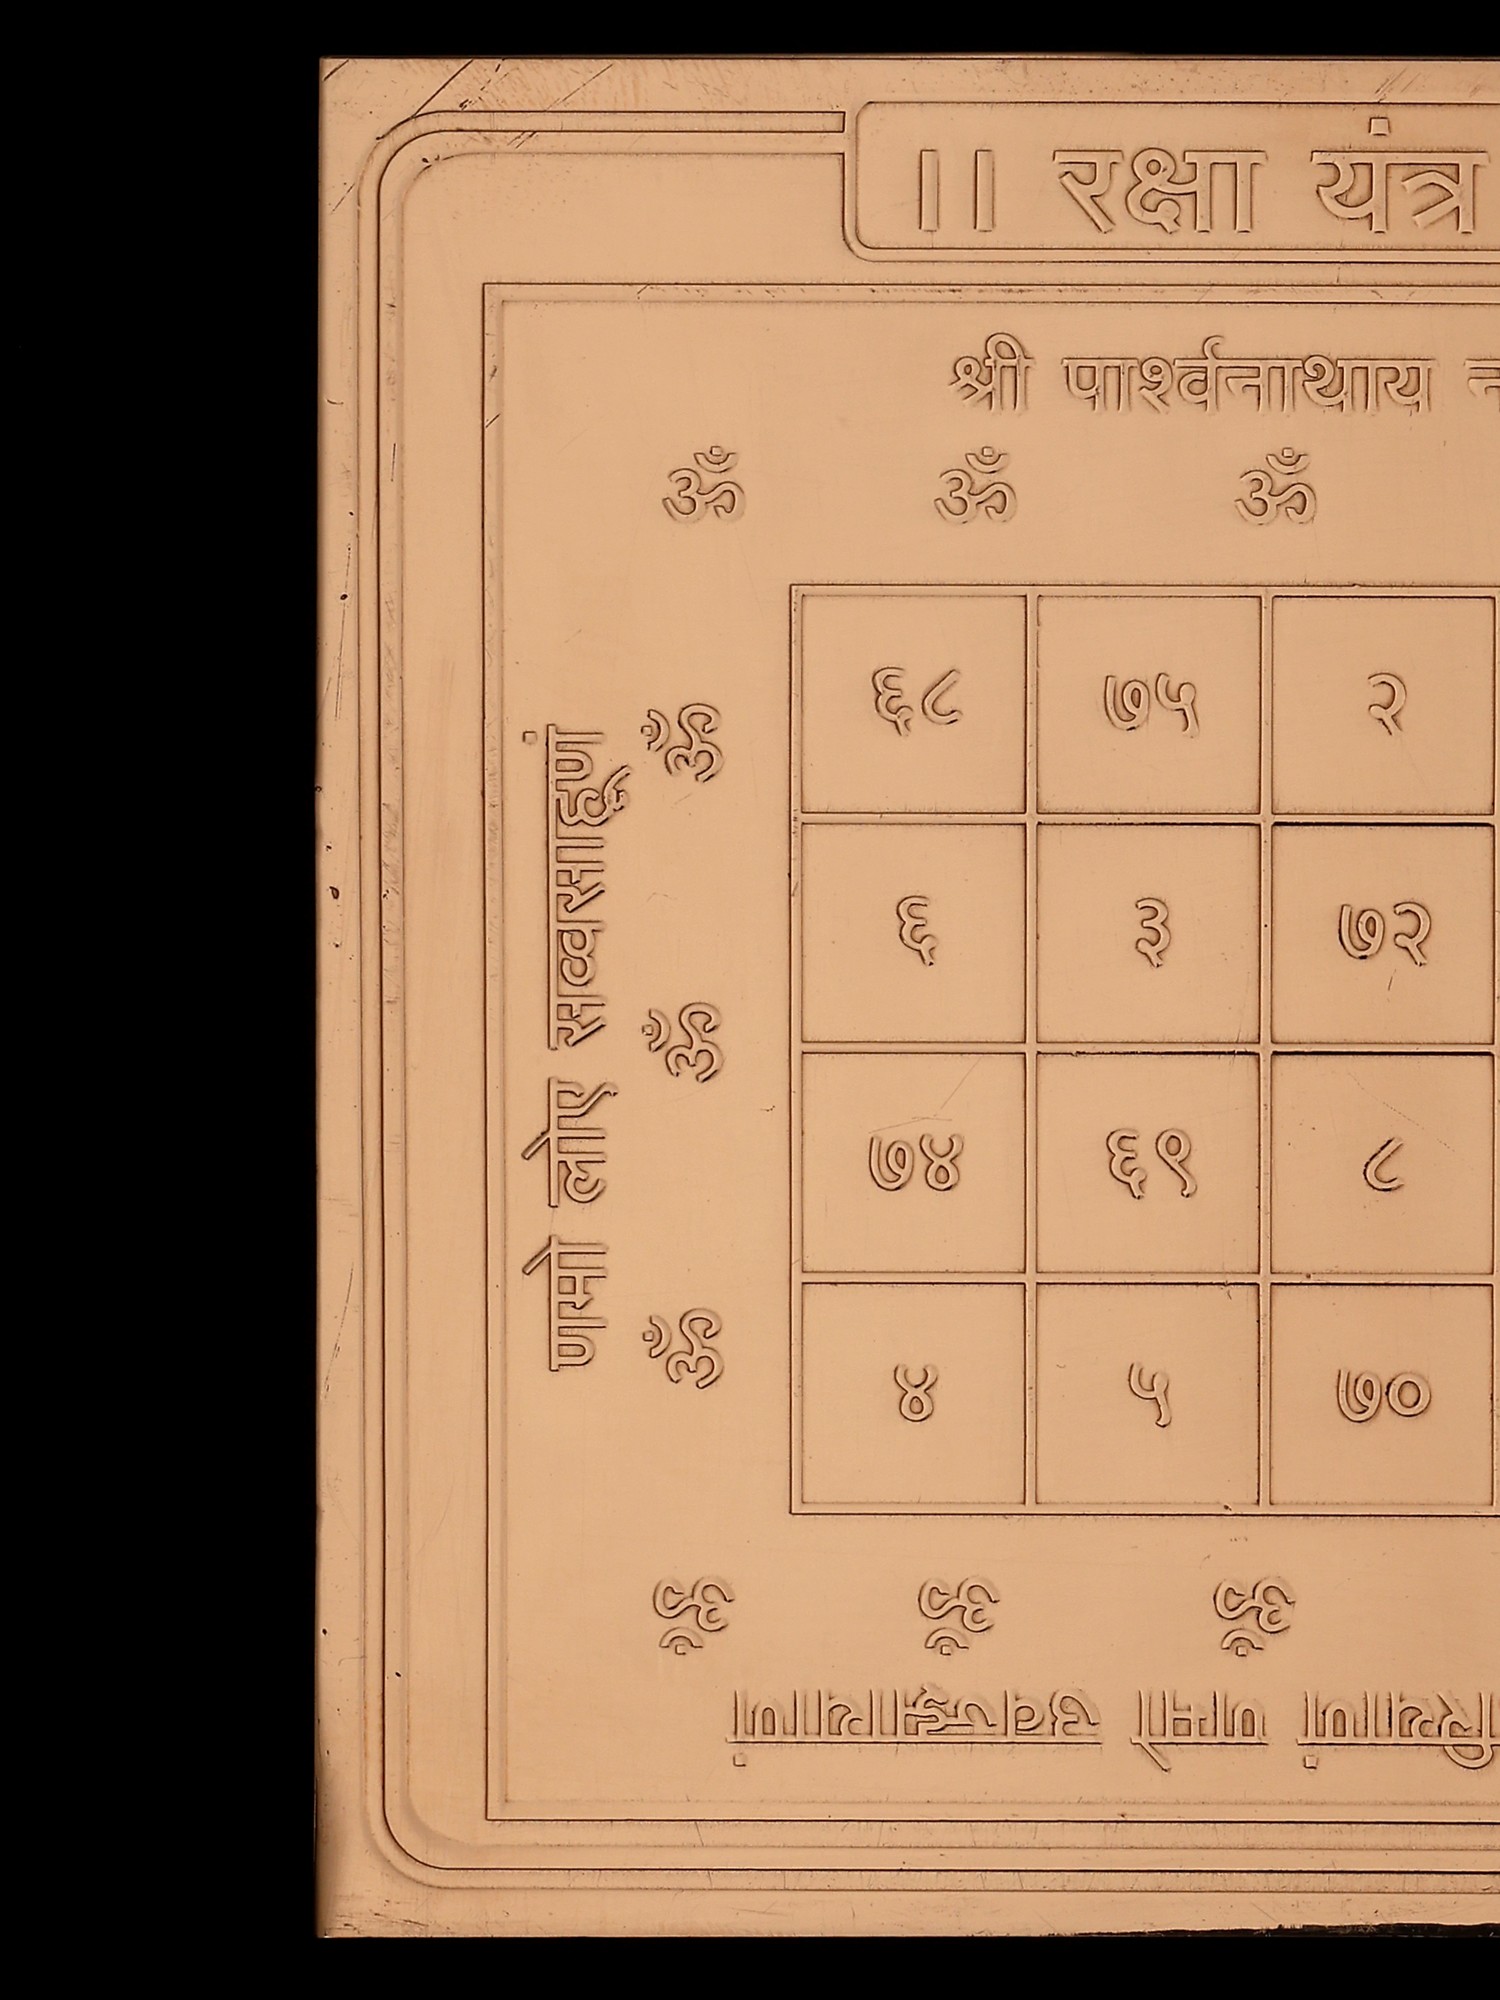 ।। रक्षा यंत्र
श्री पार्श्वनाथाय
ॐ ॐ ॐ
६८ ७५ २
६ ३ ७२
७४ ६९ ८
४ ५ ७०
णमो लोए सव्वसाहूणं
ॐ ॐ ॐ
ॐ ॐ ॐ
णमो उवज्झायाणं